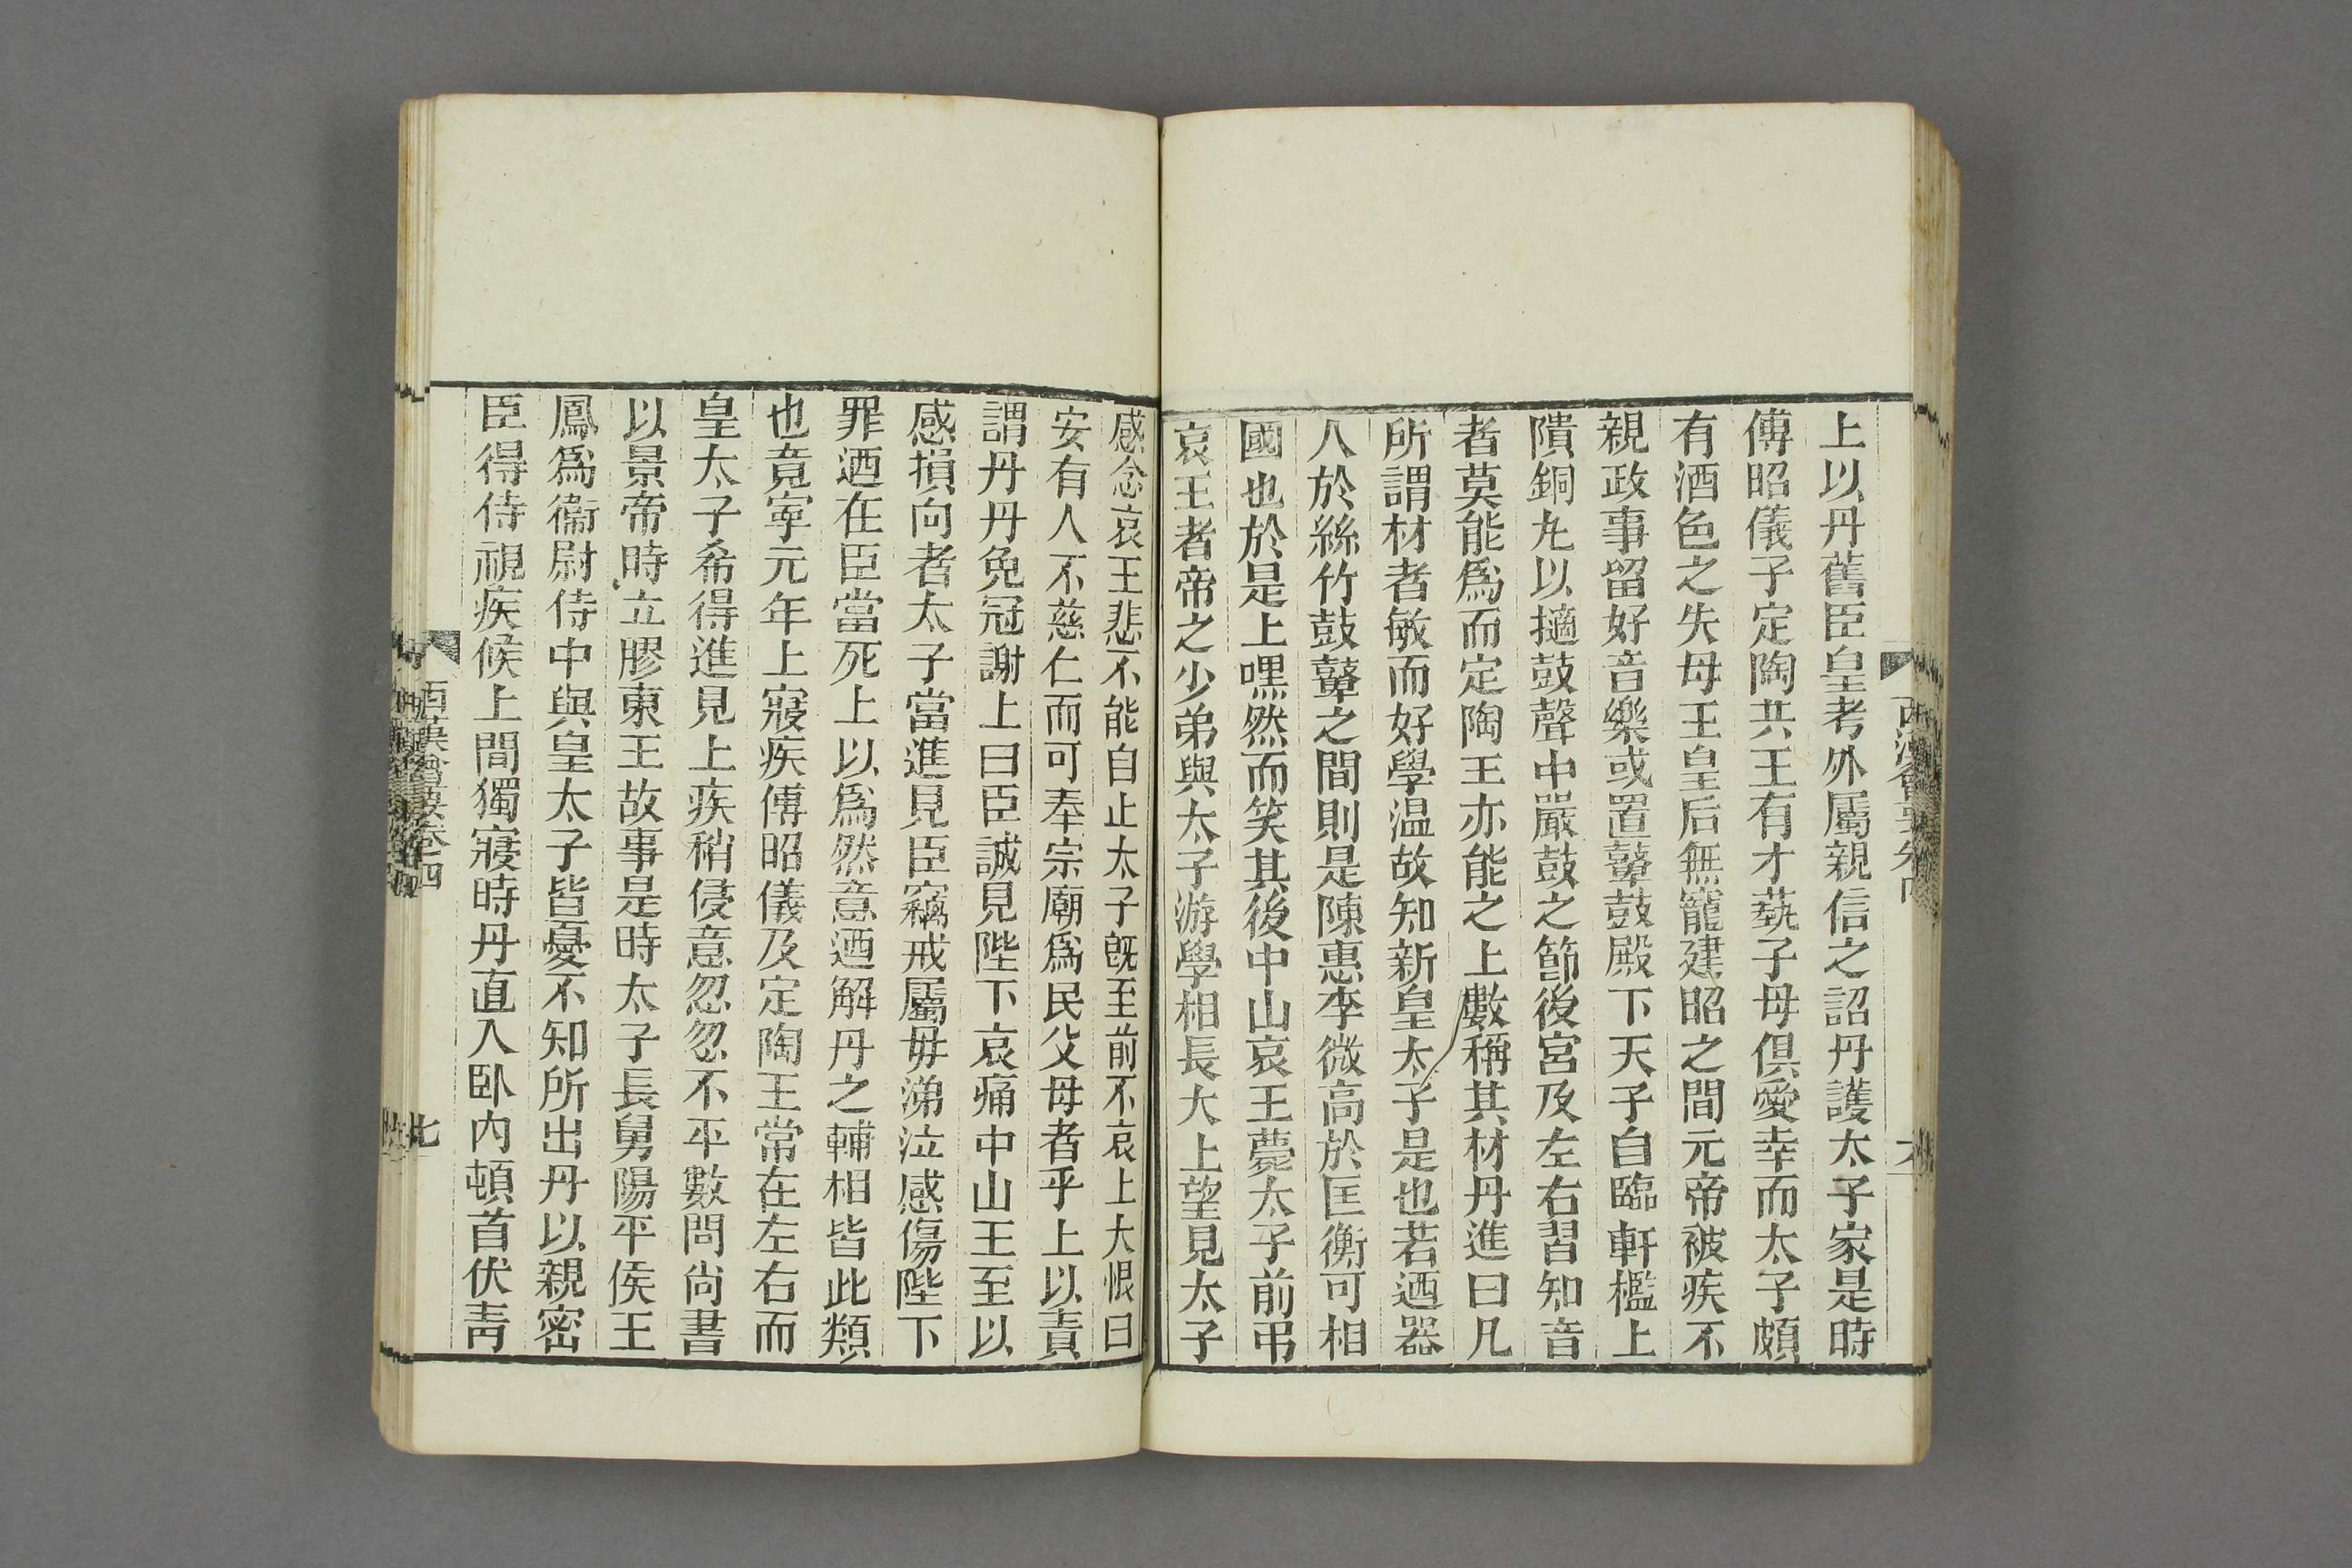 上以丹舊臣皇考外屬親信之詔丹護太子家是時
傅昭儀子定陶共王有才蓺子母俱愛幸而太子頗
有酒色之失母王皇后無寵建昭之間元帝被疾不
親政事留好音樂或置鼙鼓殿下天子自臨軒檻上
隤銅丸以擿鼓聲中嚴鼓之節後宮及左右習知音
者莫能爲而定陶王亦能之上數稱其材丹進曰凡
所謂材者敏而好學温故知新皇太子是也若迺器
人於絲竹鼓鼙之間則是陳惠李微高於匡衡可相
國也於是上嘿然而笑其後中山哀王薨太子前弔
哀王者帝之少弟與太子游學相長大上望見太子
感念哀王悲不能自止太子旣至前不哀上大恨曰
安有人不慈仁而可奉宗廟爲民父母者乎上以責
謂丹丹免冠謝上曰臣誠見陛下哀痛中山王至以
感損向者太子當進見臣竊戒屬毋涕泣感傷陛下
罪迺在臣當死上以爲然意迺解丹之輔相皆此類
也竟寧元年上寢疾傅昭儀及定陶王常在左右而
皇太子希得進見上疾稍侵意忽忽不平數問尚書
以景帝時立膠東王故事是時太子長舅陽平侯王
鳳爲衞尉侍中與皇太子皆憂不知所出丹以親密
臣得侍視疾候上間獨寢時丹直入臥内頓首伏靑
西漢會要卷四
七